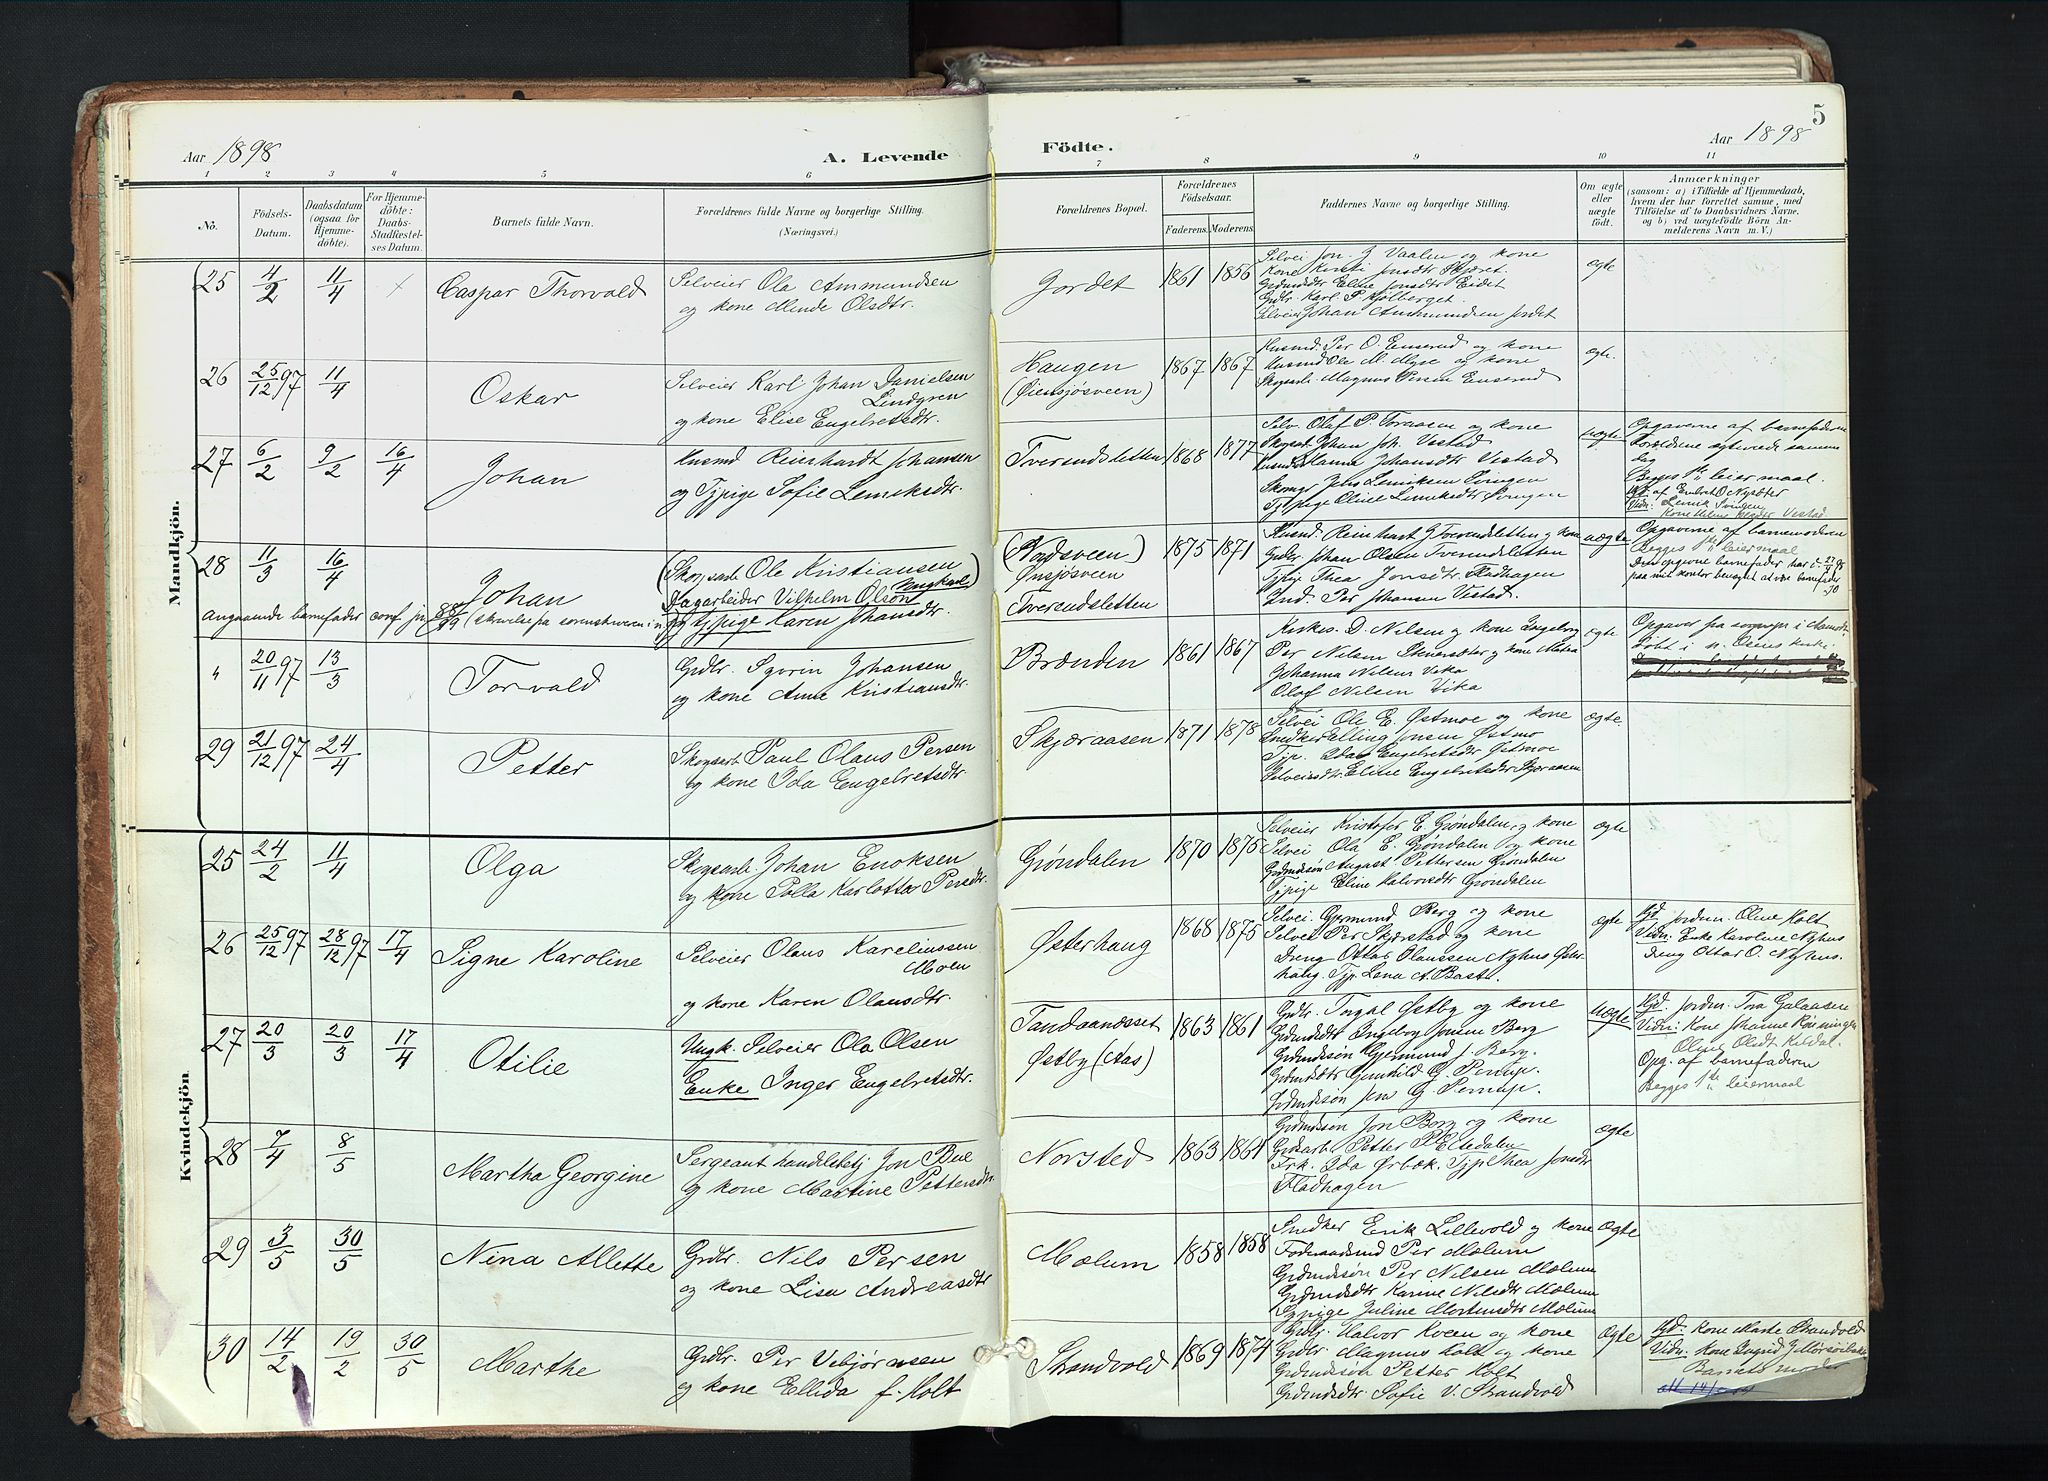 5
Aar 1898
A. Levende
Födte.
Aar 1898
1 2 3 4 5 6 7 8 9 10 11
No.
Födsels-
Datum.
Daabsdatum
(ogsaa for
Hjemme-
döbte).
For Hjemme-
döbte:
Daabs-
Stadfæstel-
ses Datum.
Barnets fulde Navn.
Forældrenes fulde Navne og borgerlige Stilling.
(Næringsvei.)
Forældrenes Bopæl.
Forældrenes
Födselsaar.
Faderens.
Moderens.
Faddernes Navne og borgerlige Stilling.
Om ægte
eller
uægte
födt.
Anmærkninger
(saasom: a) i Tilfælde af Hjemmedaab,
hvem der har forrettet samme, med
Tilföielse af to Daabsvidners Navne,
og b) ved uægtefödte Börn An-
melderens Navn m. V.)
Mandkjön.
25 4/2 11/4 Caspar Thorvald
Selveier Ola Ammundsen
og kone Mende Olsdtr.
Jordet 1861 1856
Selvei Jon J Vaalen og kone
Kone Kirsti Jonsdtr Skjæret
Grdmdsdtr Eline Jonsdtr Eidet
Grdbr. Karl P. Kjølberget.
Selveier Johan Ammundsen Jordet
ægte
26 25/12 97 11/4 Oskar
Selveier Karl Johan Danielsen
Lindgren
og kone Elise Engelretsdtr.
Haugen
(Øiensjøsveen)
1867 1867
Husmd. Per O. Enserud og kone
Husmd Ole M. Myre og kone
Skogsarb. Magnus Persen Enserud
ægte.
27 6/2 9/2 16/4 Johan
Husmd Reinhardt Johansen
og Tjpige Sofie Lemeksdtr.
Tverendsletten 1868 1877
Selv. Olaf P. Toraasen og kone
Skogsarb Johan Joh. Vestad
Hanna Johansdtr Vestad
Skomgr Jens Lemiksen Svingen
Tjpige Oline Lemekdtr Svingen
uægte
Opgaverne af barnefaderen
Forældrene ægteviede samme
dag
Begges 1ste leiermaal.
Hjd. af Embret O Nysæter
Vidn: Lemik Svingen
28 11/3 16/4 Johan
(Skogsarb Ole Kristiansen
Ungkarl
Dagarbeider Vilhelm Olsen
og tjpige Karen Johansdtr.
angaaende barnefader conf jn. 88/99 (skrivelse fa sorenskriveren
(Nordsveen)
Ønsjøsveen
Tverendsletten
1875 1871
Husmd. Reinhart J Tverendsletten og kone
Grdbr. Johan Olsen Tverendsletten
Tjpige Thea Jonsdtr Fladhagen
Ind. Per Johansen Vestad.
uægte
Opgaverne af barnemoderen
Begges 1ste leiermaal
Den opgivne barnefader har d. 27/4 98
paa mit kontor benegtet at være barnefader
" 20/11 97 13/3 Torvald
Grdbr. Syvrin Johansen
og kone Anne Kristiansdtr.
Brænden 1861 1867
Kirkes. D. Nilsen og kone Ingeborg
Per Nilsen og kone
Johanna Nilsen Vika
Olof Nilsen Vika
ægte
Opgaver fra sogneprs i Aamodt
Døbt i n. Osens kirke.
29 21/12 97 24/4 Petter
Skogsarb Paul Olaus Persen
og kone Ida Engelretsdtr
Skjæraasen 1871 1878
Selvei Ole E. Østmoe og kone
Snedker Elling Jensen Østmo
Tjp. Ida Engelretsdtr Østmoe
Selveiersdtr. Eline Engelretsdtr Skjæraasen
ægte.
Kvindekjön
25 24/2 11/4 Olga
Skogsarb. Johan Enoksen
og kone Polla Karlotta Persdtr.
Grøndalen 1870 1875
Selveier Kristofer E. Grøndalen og kone
Selvei Ola E. Grøndalen og kone
Grdmdssøn August Pettersen Grøndalen
Tjpige Eline Halvorsdtr Grøndalen
ægte
26 25/12 97 28/12 97 17/4 Signe Karoline
Selveier Olaus Kareliussen
Moen
og kone Karen Olausdtr.
Østerhaug 1868 1875
Selvei. Gjermund Berg og kone
Selvei Per Skjærstad og kone
Dreng Ottar Olaussen Nyhus Øster-
haug. Tjp. Lena A. Bast.
ægte
Hjd Jordm. Oline Holt
Vidn: Enke Karoline Nyhus
Dreng Ottar O. Nyhus.
27 20/3 20/3 17/4 Otilie
Ungk. Selveier Ola Olsen
Enke Inger Engelretsdtr.
Tandaanæsset
Østby (Aas)
1863 1861
Grdbr. Ingal Østby og kone
Grdmdsdtr Ingeborg Jonsen Berg
Grdmdssøn Gjermund J. Berg.
Grdmdsdtr Gunhild G. Pernup.
Grdmdssøn Jon G Pernup.
uægte
Hjd Jordm. Tra Galaasen
Vidn: Kone Johanne Røeningen
Oline Olsdt Kildal.
Opg. af barnefaderen
Begges 1ste leiermaal
28 7/4 8/5 Martha Georgine
Sergeant handelsbetj Jon Bue
og kone Martine Pettersdtr.
Norsted 1863 1861
Grdmdssøn Jon Berg og kone
Petter P. Eltedalen
Frk. Ida Ørbæk. Tjp Thea Jonsdtr
Fladhagen
ægte
29 3/5 30/5 Nina Allette
Grdbr. Nils Persen
og kone Lisa Andreasdtr
Mælum 1858 1858
Snedker Erik Lillevold og kone
Per Mælum
Grdmdssøn Per Nilsen Mælum
Grdmdsdtr Karine Nilsdtr Mælum
Tjpige Juline Mortensdtr Mælum
ægte
30 14/2 19/2 30/5 Marthe
Grdbr. Per Vebjørnsen
og kone Ellida f. Holt
Strandvold 1869 1874
Grdbr. Halvor Kveen og kone
Grdbr. Magnus Holt og kone
Grdmdssøn Petter Holt
Grdmdsdtr. Sofie V. Strandvold
ægte
Hjd. Kone Marte Strandvold
Vidn: Kone Ingrid
Barnets moder